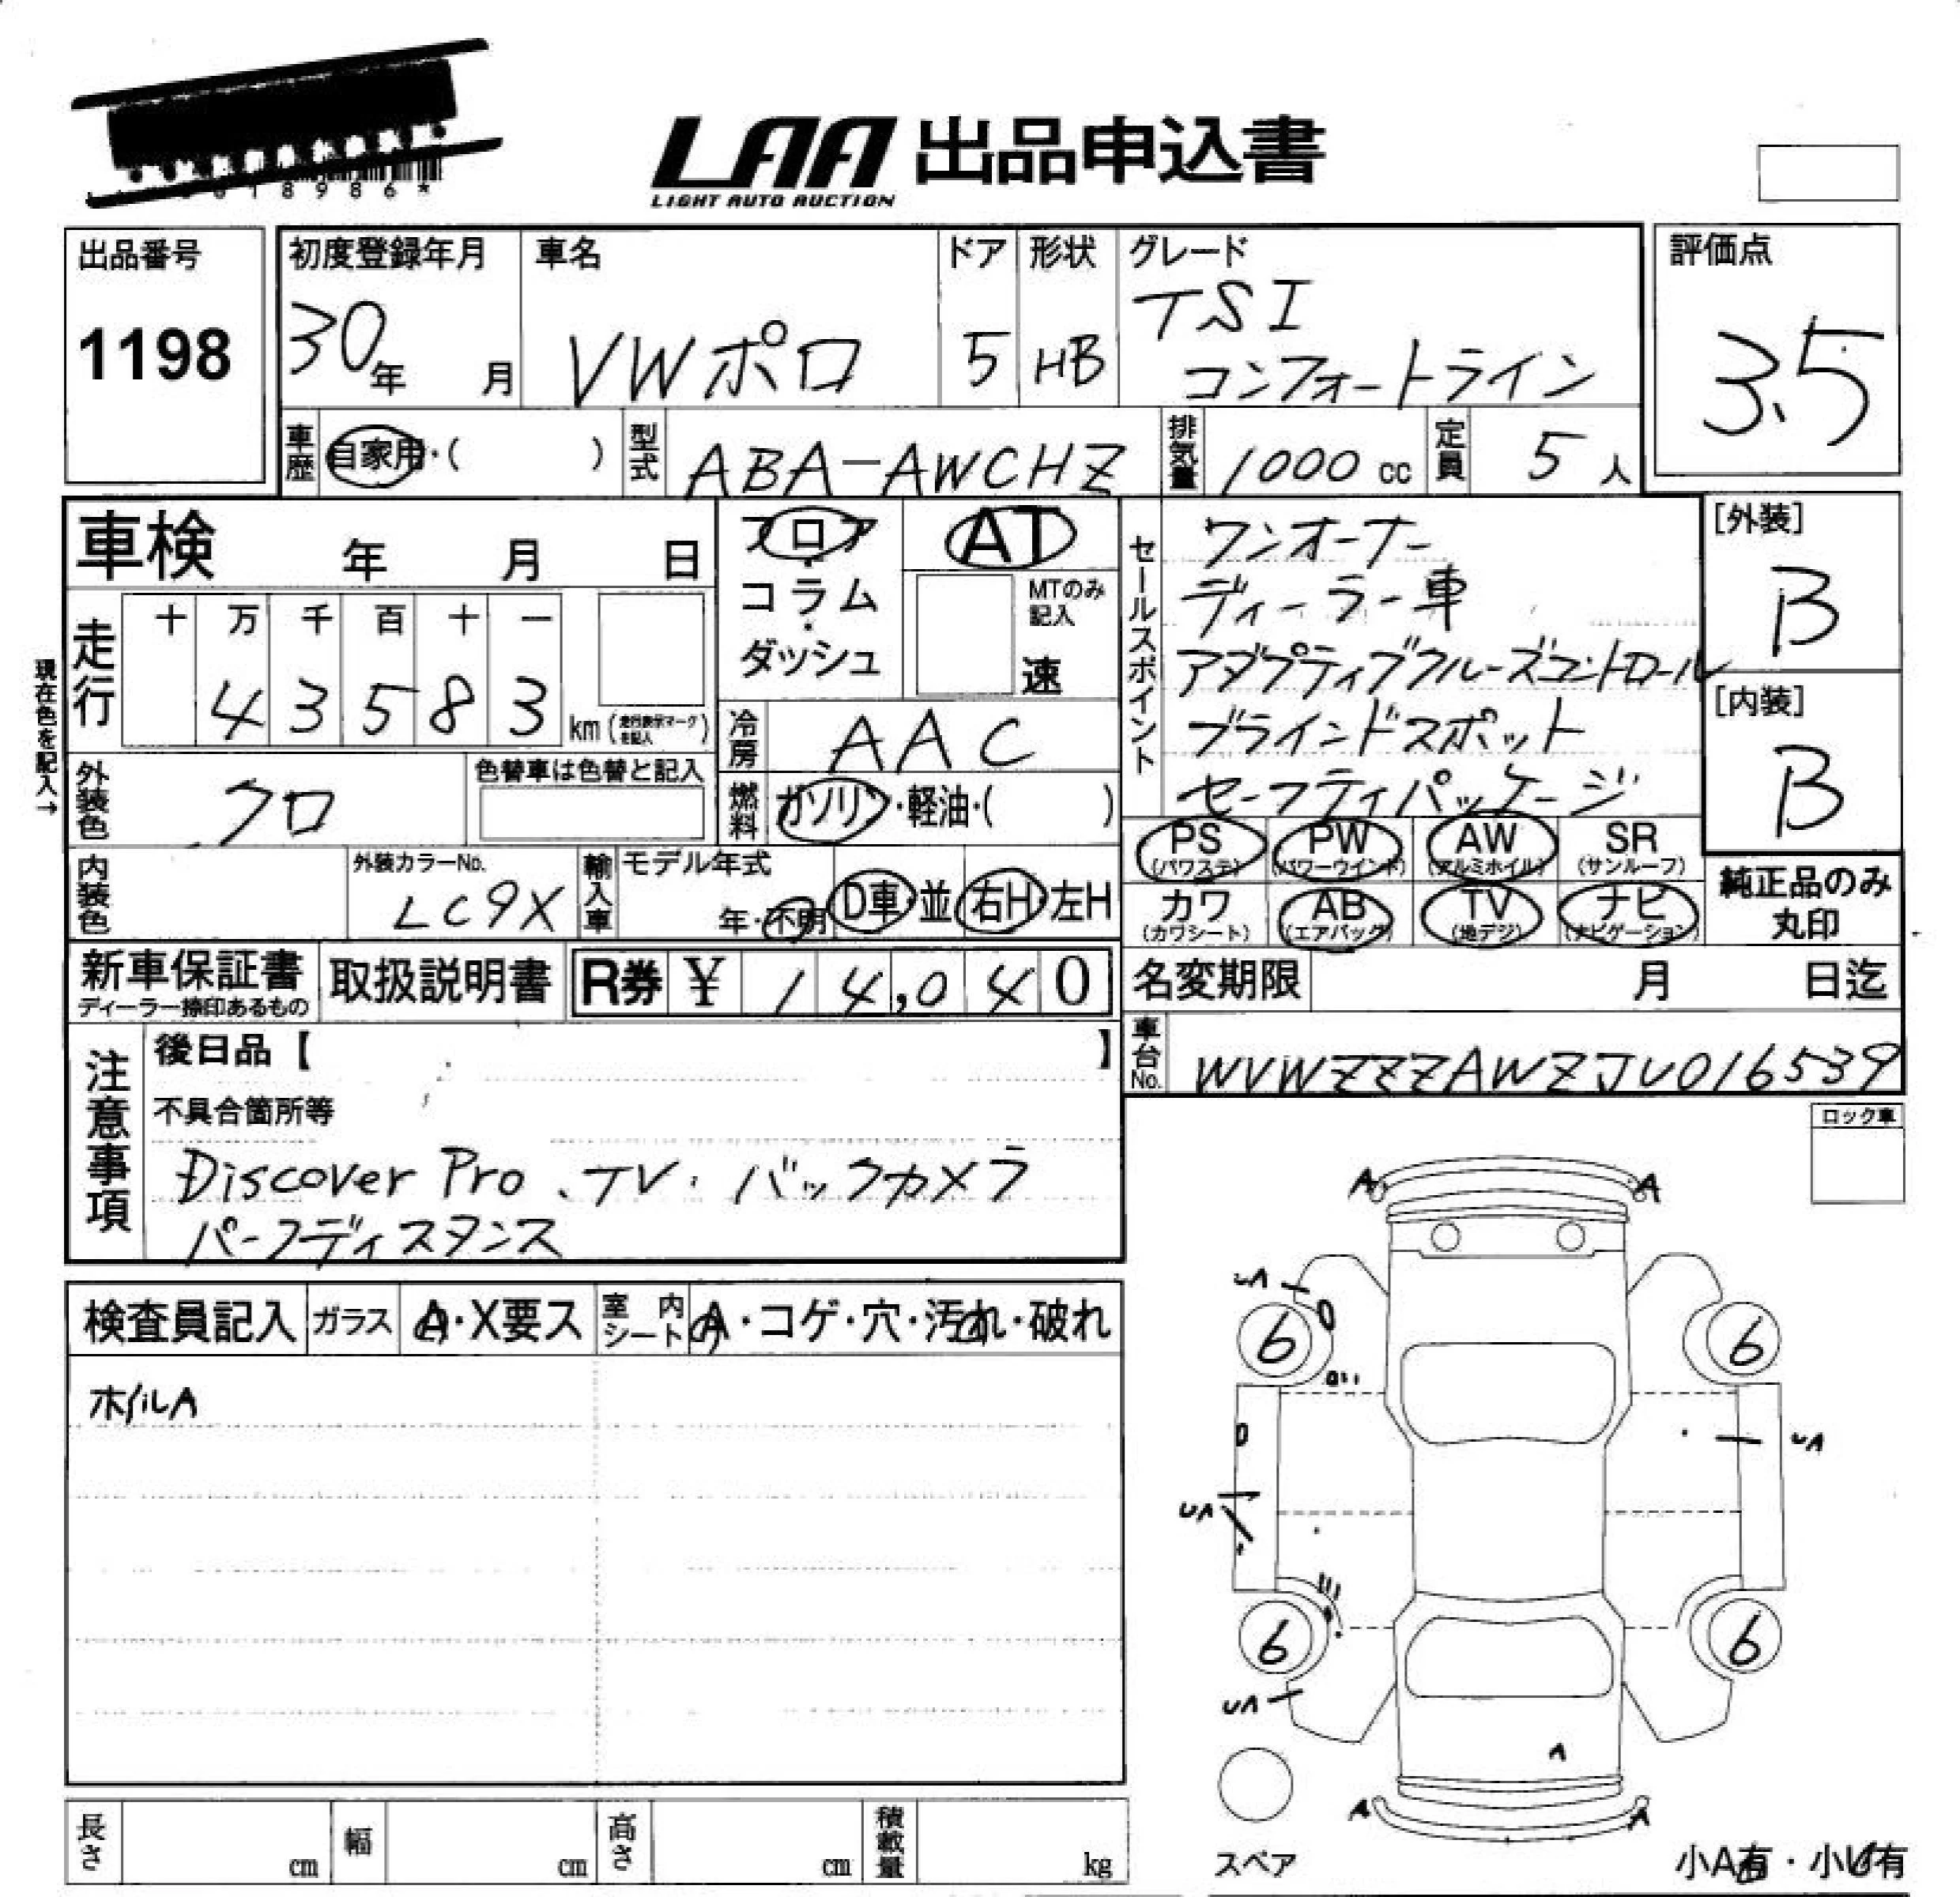 18986*
LAA 出品申込書
LIGHT AUTO AUCTION
出品番号
1198
初度登録年月
30年 月
車名
VWポロ
ドア
5
形状
HB
グレード
TSI
コンフォートライン
評価点
3.5
車歴
自家用・( )
型式
ABA-AWCHZ
排気量
1000 cc
定員
5 人
車検 年 月 日
フロア
コラム
ダッシュ
AT
MTのみ
記入
速
セールスポイント
ワンオーナー
ディーラー車
アダプティブクルーズコントロール
ブラインドスポット
セーフティパッケージ
[外装]
B
[内装]
B
現在色を記入→
走行
十 万 千 百 十 一
4 3 5 8 3
km (走行表示マークを記入)
冷房
AAC
外装色
クロ
色替車は色替と記入
燃料
ガソリン・軽油・( )
PS
(パワステ)
PW
(パワーウインド)
AW
(アルミホイル)
SR
(サンルーフ)
カワ
(カワシート)
AB
(エアバッグ)
TV
(地デジ)
ナビ
(ナビゲーション)
純正品のみ
丸印
内装色
外装カラーNo.
LC9X
輸入車
モデル年式
年・不明
D車・並
右H・左H
新車保証書
ディーラー捺印あるもの
取扱説明書
R券 ¥ 14,040
名変期限 月 日迄
車台No.
WVWZZZAWZJU016539
注意事項
後日品【 】
不具合箇所等
Discover Pro、TV・バックカメラ
パークディスタンス
ロック車
検査員記入
ガラス
A・X要ス
室内シート
A・コゲ・穴・汚れ・破れ
ホイルA
A A
UA
6 6
UA
UA
6 6
UA
A
A A
スペア
小A有・小U有
長さ cm
幅 cm
高さ cm
積載量 kg